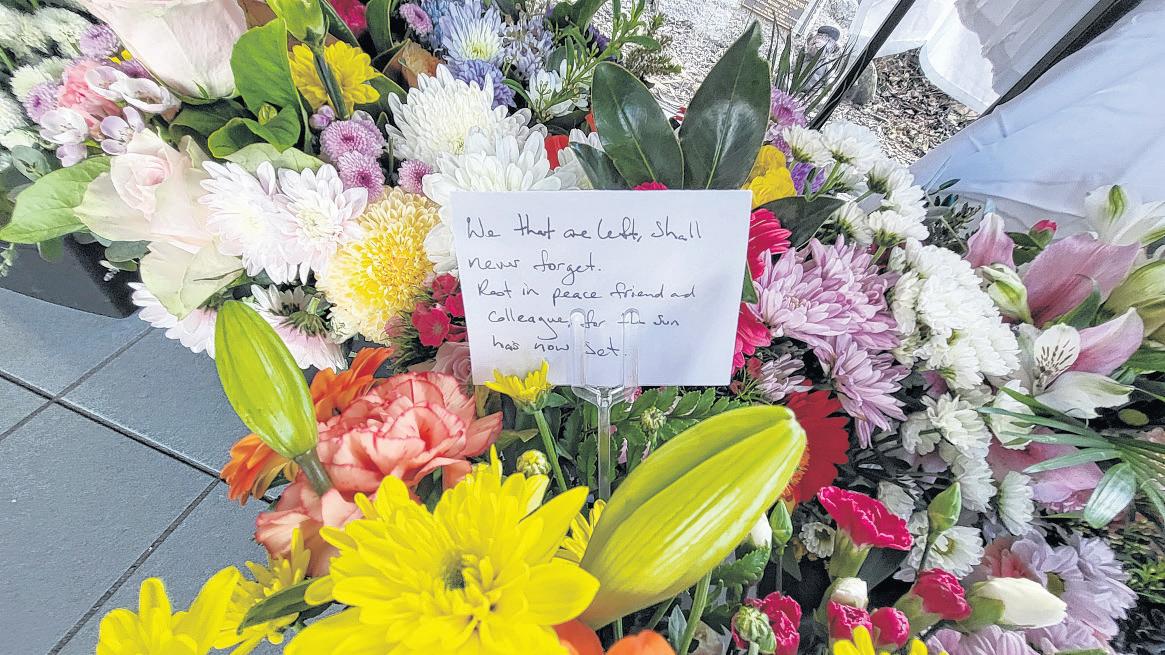 We that are left, shall
never forget.
Rest in peace friend and
colleague, for the sun
has now set.